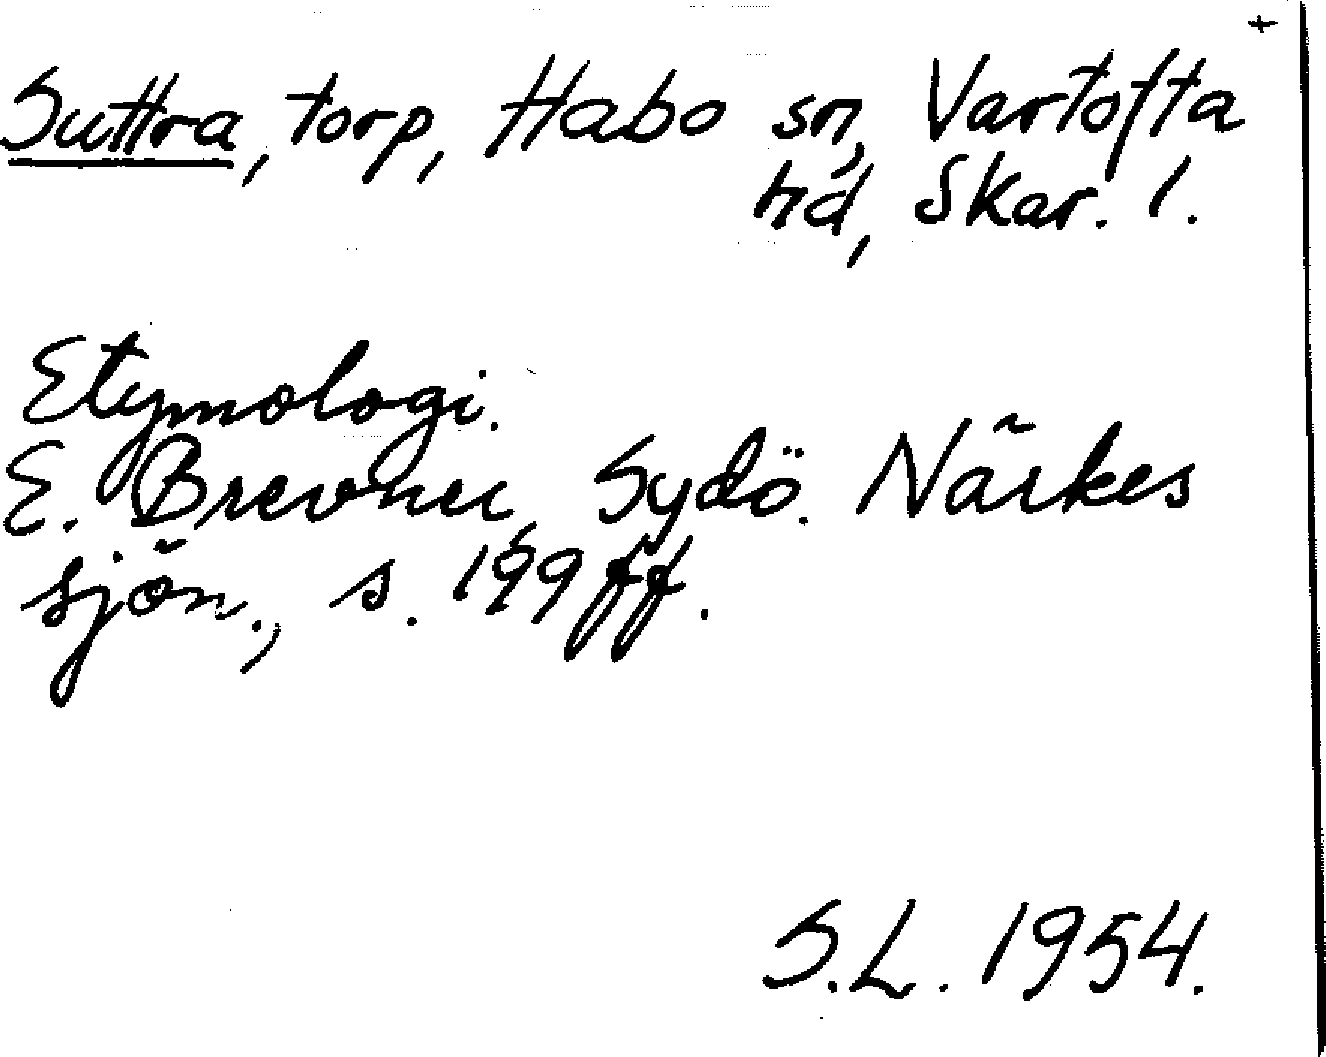 +
Suttra, torp, Habo sn, Vartofta
hd, Skar. l.
Etymologi.
E. Brevner, Sydö. Närkes
sjön., s. 199 ff.
S.L. 1954.